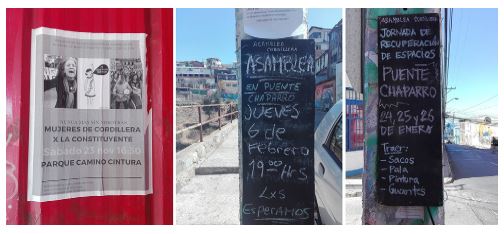 NUNCA MAS SIN NOSOTRAS
MUJERES DE CORDILLERA
X LA CONSTITUYENTE
Sábado 23 nov 16:30
PARQUE CAMINO CINTURA
ASAMBLEA
CORDILLERA
ASAMBLEA
EN PUENTE
CHAPARRO
JUEVES
6 de
Febrero
19:00 Hrs
Lxs
Esperamos
ASAMBLEA CORDILLERA
JORNADA DE
RECUPERACIÓN
DE ESPACIOS
PUENTE
CHAPARRO
24, 25 y 26
DE ENERO
Traer:
- Sacos
- Pala
- Pintura
- Guantes